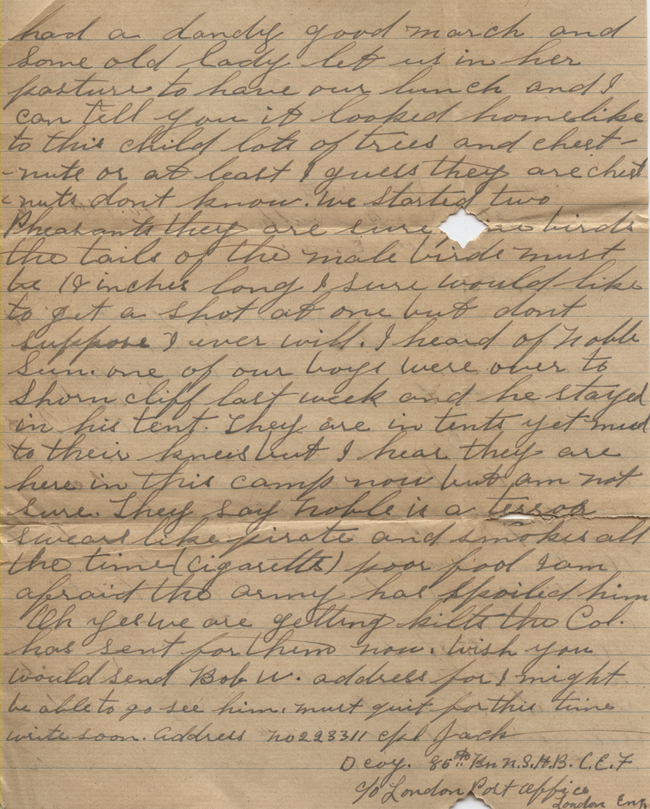 had a dandy good march and
some old lady let us in her
pasture to have our lunch and I
can tell you it looked homelike
to this child lots of trees and chest-
-nuts or at least I guess they are chest
-nuts dont know. We started two
Pheasants they are sure birds
the tails of the male birds must
be 18 inches long I sure would like
to get a shot at one but dont
suppose I ever will. I heard of Noble
Sun. one of our boys were over to
Shorn cliff last week and he stayed
in his tent. They are in tents yet mud
to their knees but I hear they are
here in this camp now but am not
sure. They say Noble is a terror
swears like pirate and smokes all
the time (cigaretts) poor fool I am
afraid the army has spoiled him
Oh yes we are getting kilts the Col.
has sent for them now. Wish you
would send Bob W. address for I might
be able to go see him. must quit for this time
write soon. Address no 223311 cpl Jack
85th Bn N.S.H.B. C.E.F
c/o London Post office
London Eng